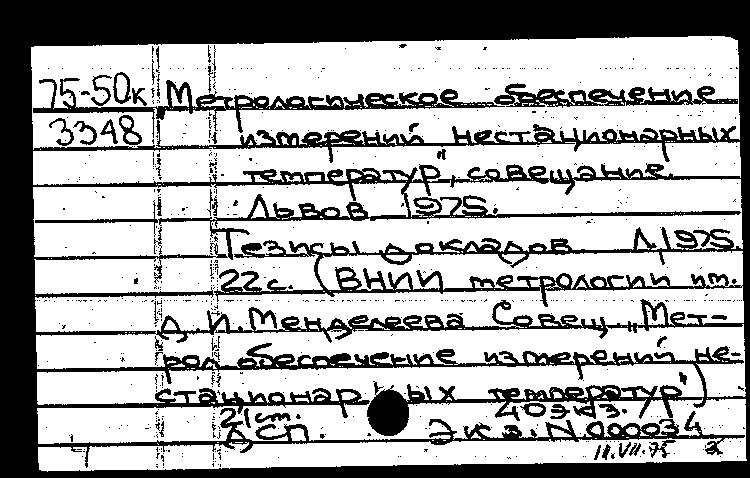 75-50к Метрологическое обеспечение
3348 измерений нестационарных
температур", совещание.
Львов. 1975.
Тезисы докладов. Л, 1975.
22с. (ВНИИ метрологии им.
Д. И. Менделеева. Совещ. „Мет-
рол. обеспечение измерений не-
стационарных температур")
21 ст. 40 экз.
ДСП. Экз. N 000034
11.VII.75